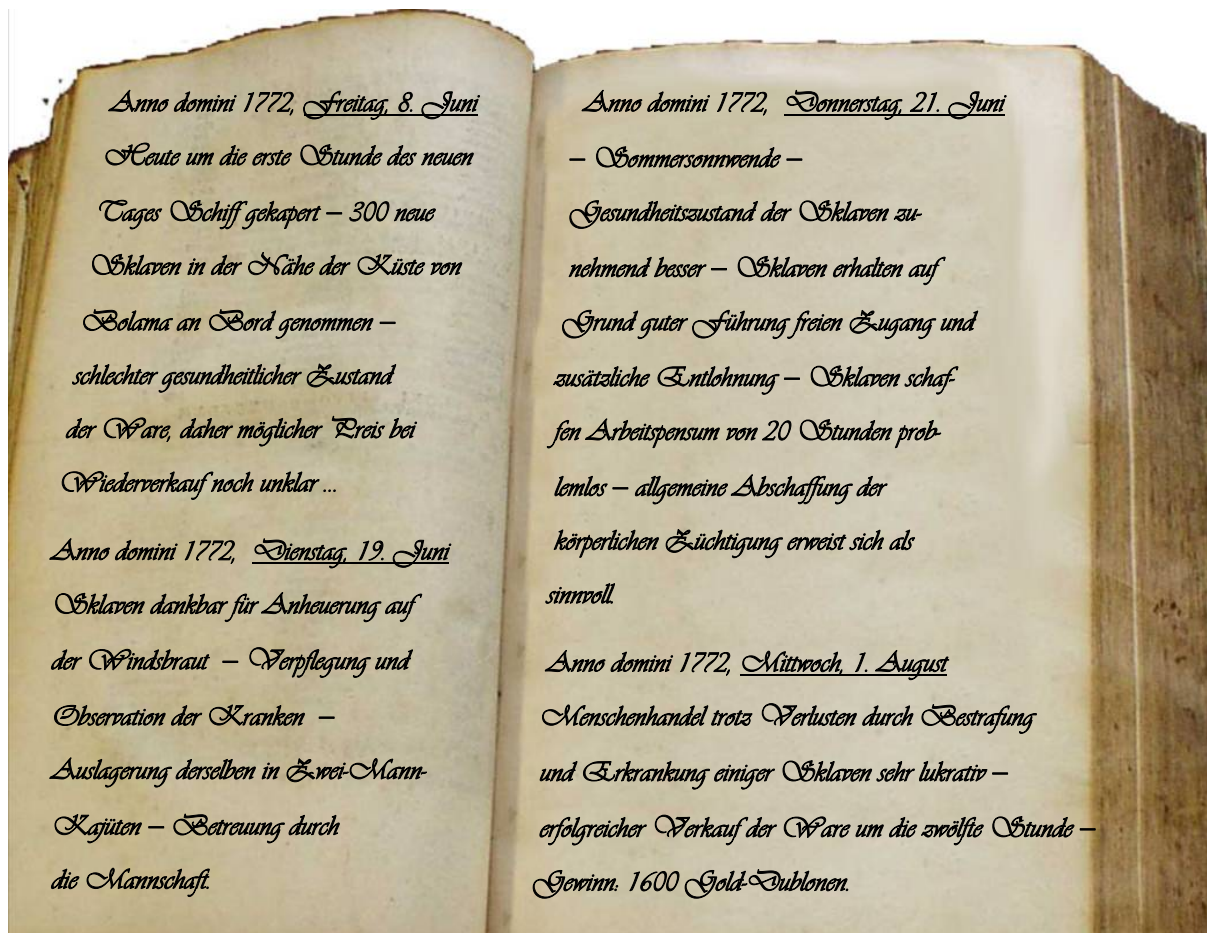 Anno domini 1772, Freitag, 8. Juni
Heute um die erste Stunde des neuen
Tages Schiff gekapert – 300 neue
Sklaven in der Nähe der Küste von
Bolama an Bord genommen –
schlechter gesundheitlicher Zustand
der Ware, daher möglicher Preis bei
Wiederverkauf noch unklar ...
Anno domini 1772, Dienstag, 19. Juni
Sklaven dankbar für Anheuerung auf
der Windsbraut – Verpflegung und
Observation der Kranken –
Auslagerung derselben in Zwei-Mann-
Kajüten – Betreuung durch
die Mannschaft.
Anno domini 1772, Donnerstag, 21. Juni
– Sommersonnwende –
Gesundheitszustand der Sklaven zu-
nehmend besser – Sklaven erhalten auf
Grund guter Führung freien Zugang und
zusätzliche Entlohnung – Sklaven schaf-
fen Arbeitspensum von 20 Stunden prob-
lemlos – allgemeine Abschaffung der
körperlichen Züchtigung erweist sich als
sinnvoll.
Anno domini 1772, Mittwoch, 1. August
Menschenhandel trotz Verlusten durch Bestrafung
und Erkrankung einiger Sklaven sehr lukrativ –
erfolgreicher Verkauf der Ware um die zwölfte Stunde –
Gewinn: 1600 Gold-Dublonen.